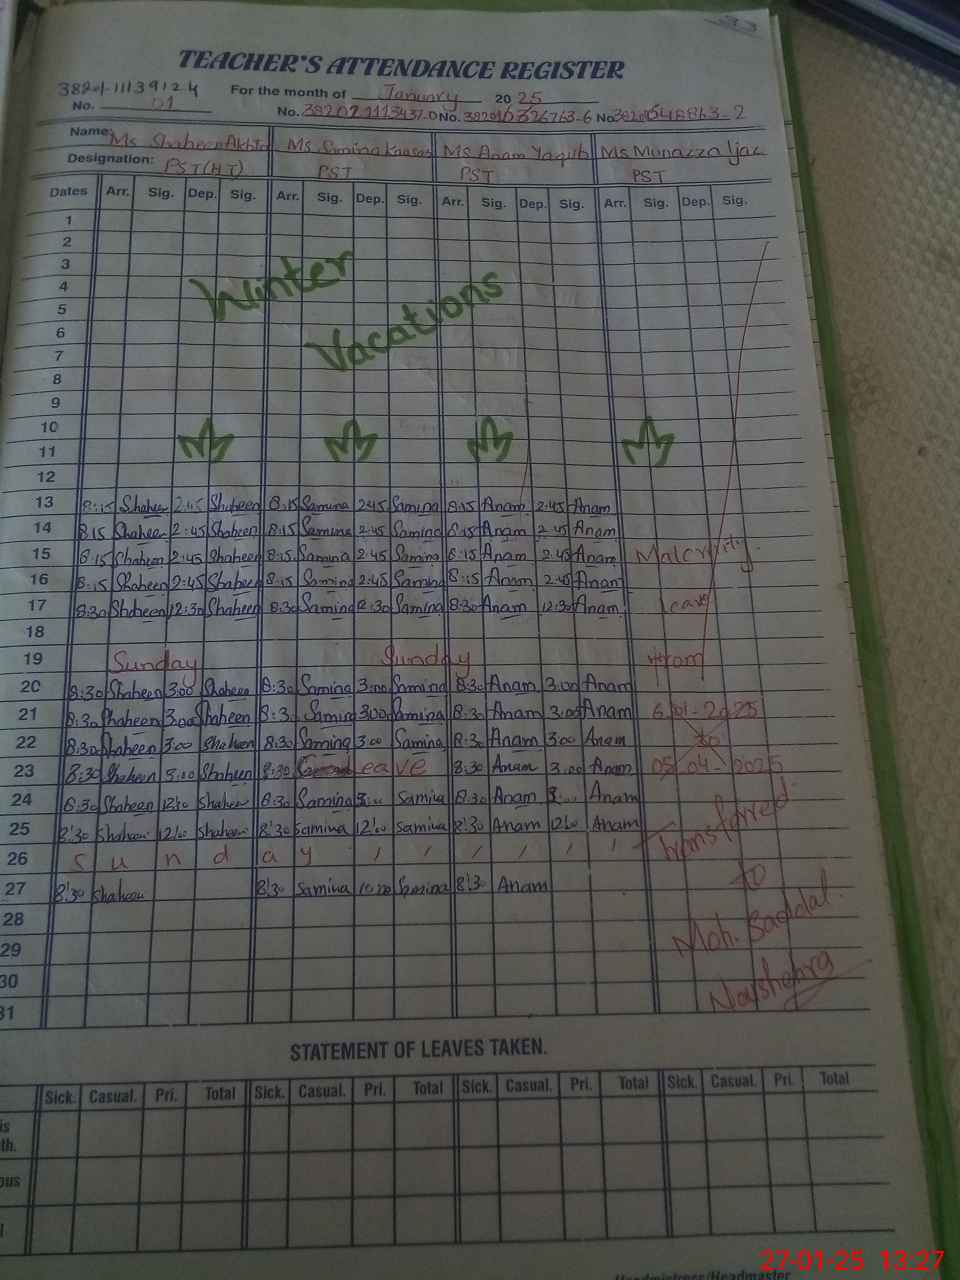 33
TEACHER'S ATTENDANCE REGISTER
For the month of January 2025
No. 01
Name: Ms Shaheen Akhtar Ms Samina Ms Anam Yaqub Ms Munazza Ijaz
Designation: PST(HT) PST PST PST
Dates Arr. Sig. Dep. Sig. Arr. Sig. Dep. Sig. Arr. Sig. Dep. Sig. Arr. Sig. Dep. Sig.
1
2
3
4
Winter
5
6
Vacations
7
8
9
10
11
12
13 8:15 Shaheen 2:45 Shaheen 8:15 Samina 2:45 Samina 8:15 Anam 2:45 Anam
14 8:15 Shaheen 2:45 Shaheen 8:15 Samina 2:45 Samina 8:15 Anam 2:45 Anam
15 8:15 Shaheen 2:45 Shaheen 8:15 Samina 2:45 Samina 8:15 Anam 2:45 Anam
16 8:15 Shaheen 2:45 Shaheen 8:15 Samina 2:45 Samina 8:15 Anam 2:45 Anam
17 8:30 Shaheen 12:30 Shaheen 8:30 Samina 12:30 Samina 8:30 Anam 12:30 Anam leave
18
19 Sunday Sunday from
20 8:30 Shaheen 3:00 Shaheen 8:30 Samina 3:00 Samina 8:30 Anam 3:00 Anam
21 8:30 Shaheen 3:00 Shaheen 8:30 Samina 3:00 Samina 8:30 Anam 3:00 Anam 6-01-2025
22 8:30 Shaheen 3:00 Shaheen 8:30 Samina 3:00 Samina 8:30 Anam 3:00 Anam
23 8:30 Shaheen 3:00 Shaheen 8:30 Leave 8:30 Anam 3:00 Anam 05-04-2025
24 8:30 Shaheen Shaheen 8:30 Samina Samina 8:30 Anam Anam
25 8:30 Shaheen 12:00 Shaheen 8:30 Samina 12:00 Samina 8:30 Anam 12:00 Anam Transferred
26 Sunday
27 8:30 Shaheen 8:30 Samina Samina 8:30 Anam to
28
29 Moh. Baddal
30
31 Nowshehra
STATEMENT OF LEAVES TAKEN.
Sick. Casual. Pri. Total Sick. Casual. Pri. Total Sick. Casual. Pri. Total Sick. Casual. Pri. Total
27-01-25 13:27